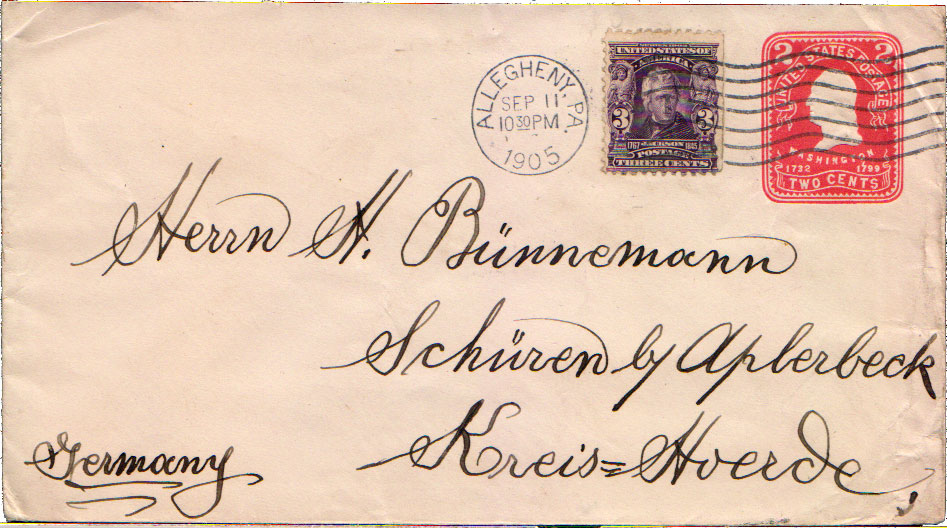 ALLEGHENY, PA.
SEP 11
10 30 PM
1905
UNITED STATES OF
AMERICA
3 3
1767 JACKSON 1845
POSTAGE
THREE CENTS
2 UNITED STATES POSTAGE 2
WASHINGTON
1732 1799
TWO CENTS
Herrn H. Bünnemann
Schüren by Aplerbeck
Kreis=Hoerde
Germany